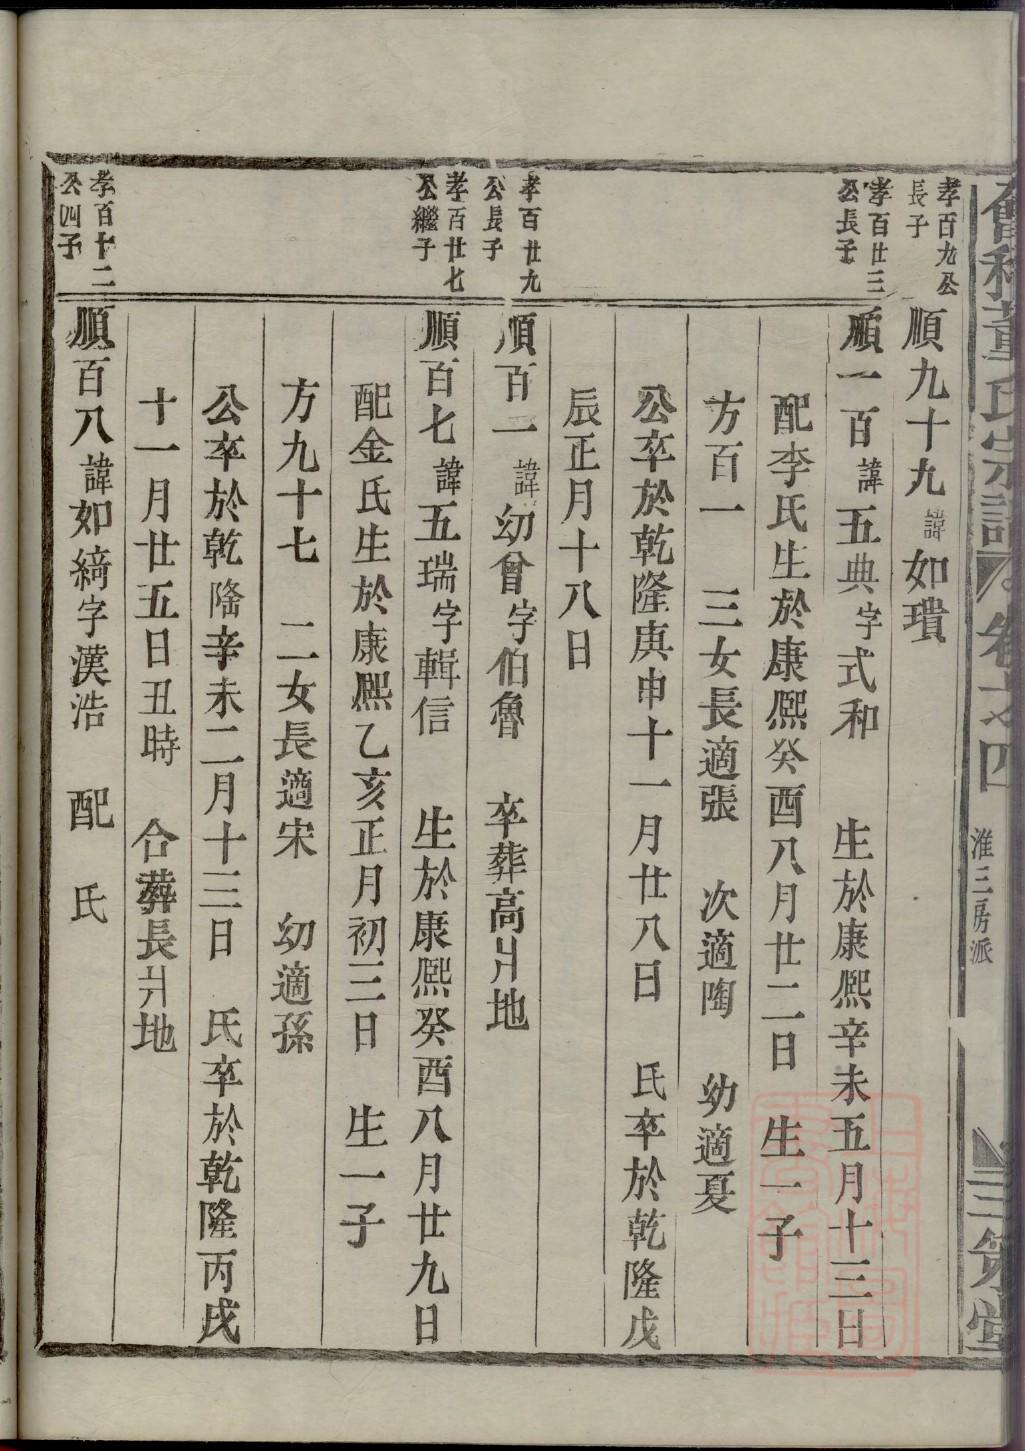 董氏宗譜 卷之四 淮三房派 三策堂
孝百九公
長子
順九十九諱如璝
孝百廿三
公長子
順一百諱五典字式和 生於康熙辛未五月十三日
配李氏生於康熙癸酉八月廿二日 生一子
方百一 三女長適張 次適陶 幼適夏
公卒於乾隆庚申十一月廿八日 氏卒於乾隆戊
辰正月十八日
孝百廿九
公長子
順百一諱幼曾字伯魯 卒葬高爿地
孝百廿七
公繼子
順百七諱五瑞字輯信 生於康熙癸酉八月廿九日
配金氏生於康熙乙亥正月初三日 生一子
方九十七 二女長適宋 幼適孫
公卒於乾隆辛未二月十三日 氏卒於乾隆丙戌
十一月廿五日丑時 合葬長爿地
孝百十二
公四子
順百八諱如綺字漢浩 配 氏